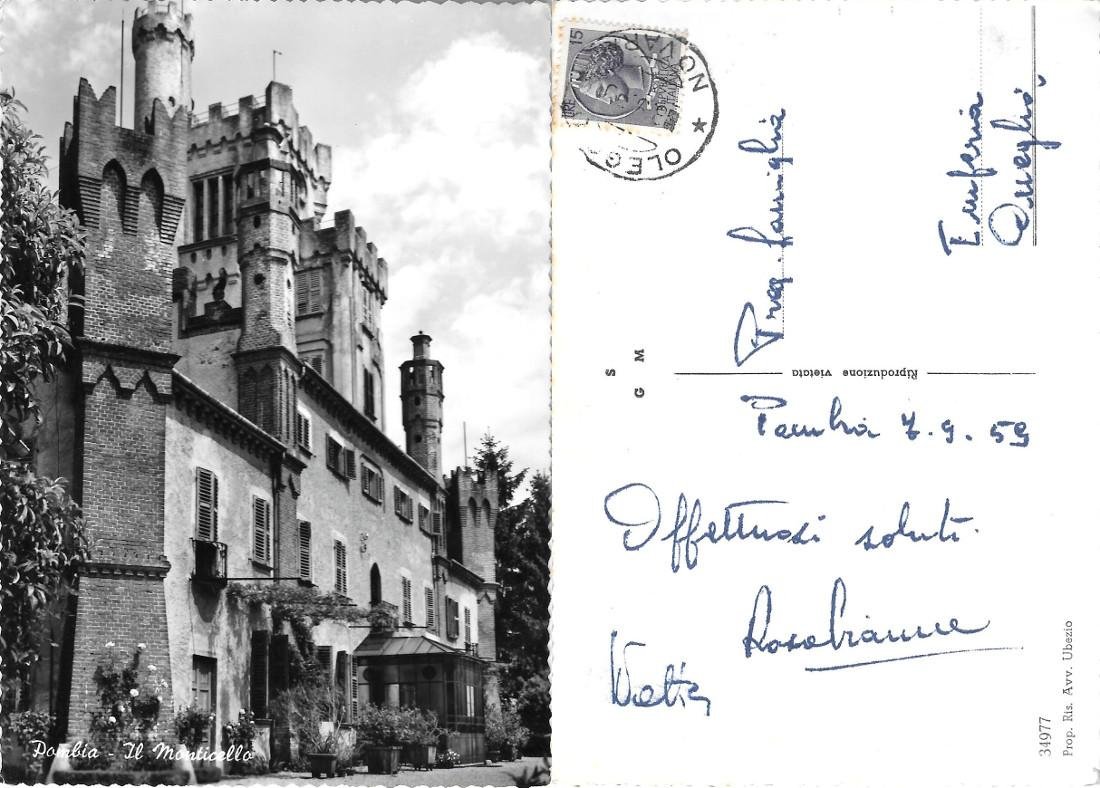 Pombia - Il Monticello
15
NOVARA
* OLEG
Preg. famiglia
Imperia
Oneglia
S
G M
Riproduzione vietata
Pombia 7.9.59
Affettuosi saluti.
Rosabianca
34977
Prop. Ris. Avv. Ubezio